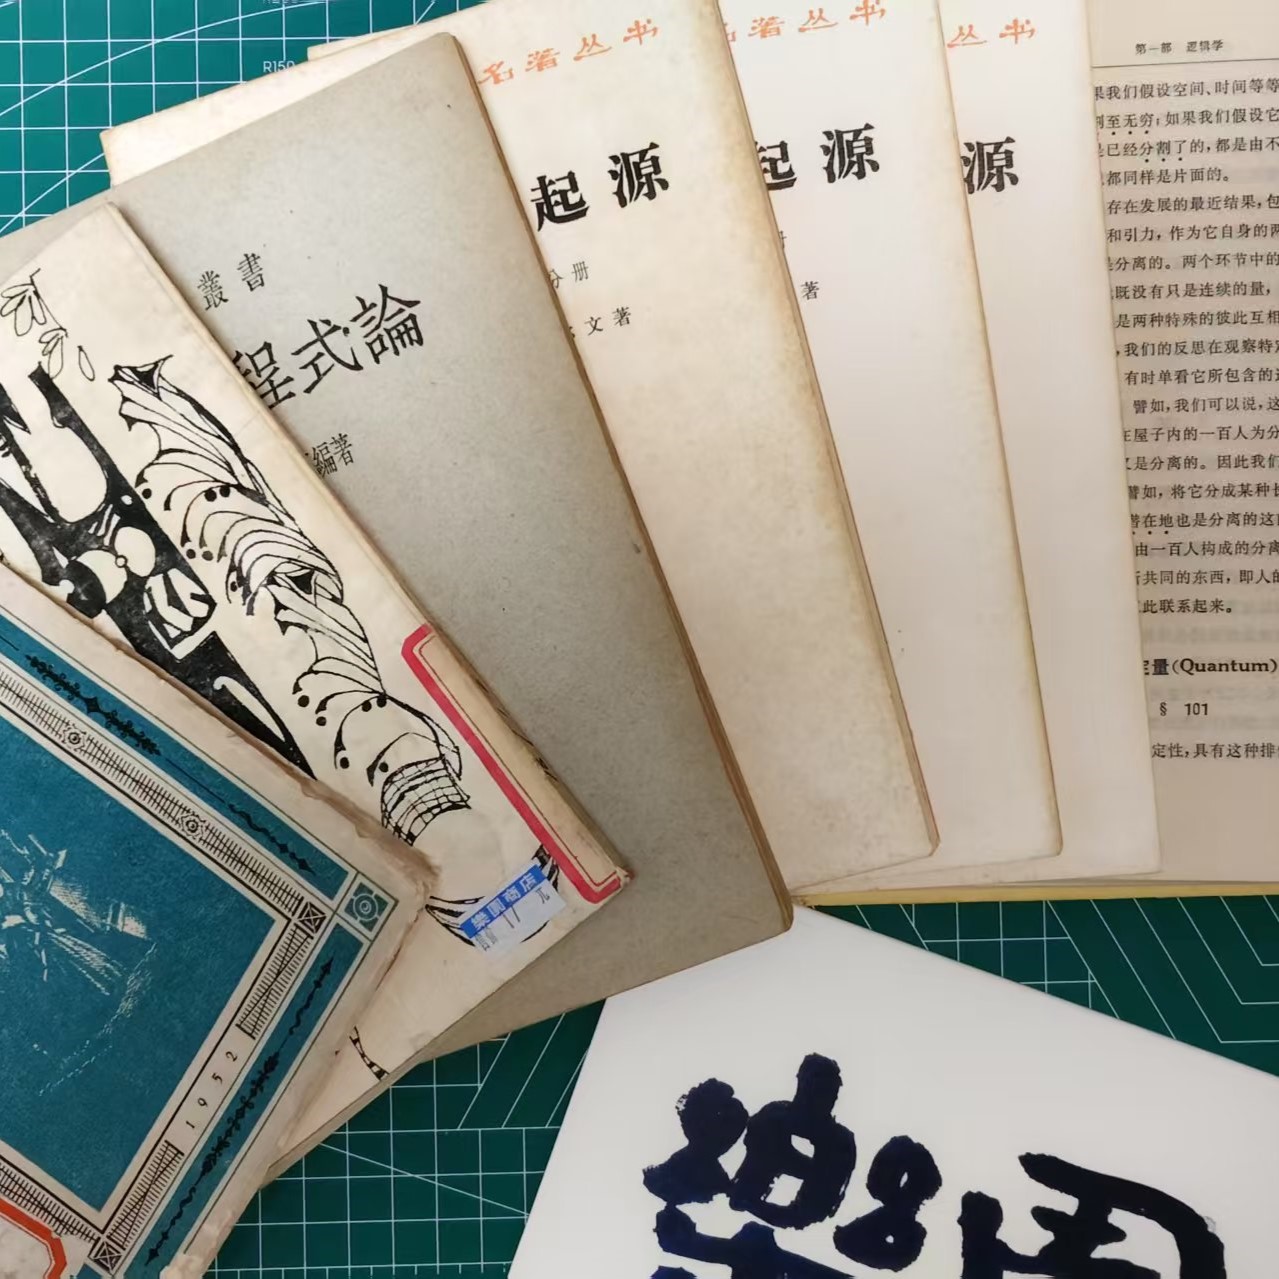 R150
叢書
程式論
編著
1952
樂園商店
17元
名著丛书
起源
分册
文著
著丛书
起源
册
著
丛书
源
第一部 逻辑学
果我们假设空间、时间等等
割至无穷；如果我们假设它
是已经分割了的，都是由不
都同样是片面的。
存在发展的最近结果，包
和引力，作为它自身的两
是分离的。两个环节中的
既没有只是连续的量，
是两种特殊的彼此互相
，我们的反思在观察特定
有时单看它所包含的这
譬如，我们可以说，这
在屋子内的一百人为分
又是分离的。因此我们
譬如，将它分成某种长
潜在地也是分离的这
由一百人构成的分离
所共同的东西，即人的
此联系起来。
定量(Quantum)
§ 101
定性，具有这种排
樂周